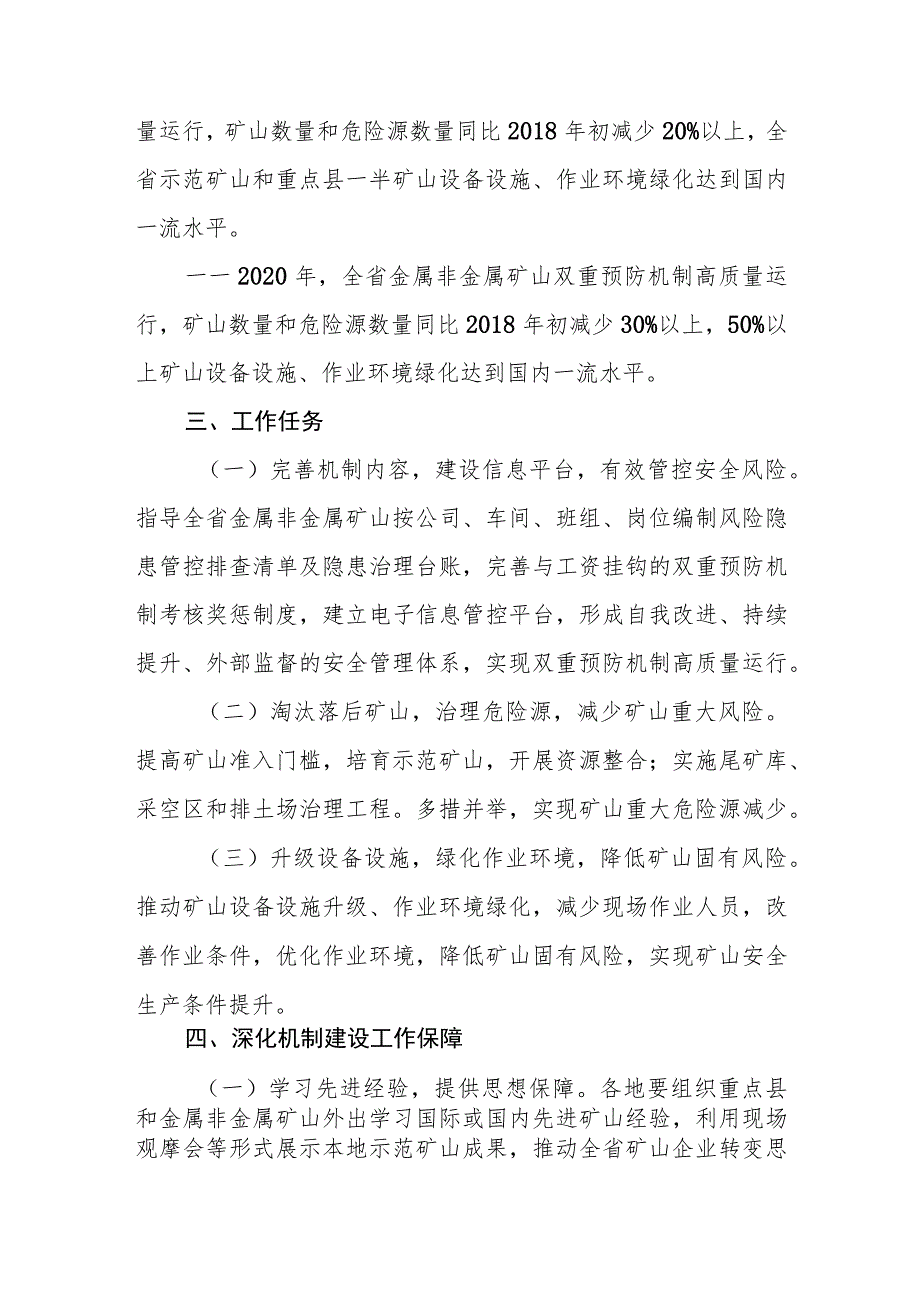 量运行，矿山数量和危险源数量同比 2018 年初减少 20%以上，全
省示范矿山和重点县一半矿山设备设施、作业环境绿化达到国内
一流水平。
一一 2020 年，全省金属非金属矿山双重预防机制高质量运
行，矿山数量和危险源数量同比 2018 年初减少 30%以上，50%以
上矿山设备设施、作业环境绿化达到国内一流水平。
三、工作任务
（一）完善机制内容，建设信息平台，有效管控安全风险。
指导全省金属非金属矿山按公司、车间、班组、岗位编制风险隐
患管控排查清单及隐患治理台账，完善与工资挂钩的双重预防机
制考核奖惩制度，建立电子信息管控平台，形成自我改进、持续
提升、外部监督的安全管理体系，实现双重预防机制高质量运行。
（二）淘汰落后矿山，治理危险源，减少矿山重大风险。
提高矿山准入门槛，培育示范矿山，开展资源整合；实施尾矿库、
采空区和排土场治理工程。多措并举，实现矿山重大危险源减少。
（三）升级设备设施，绿化作业环境，降低矿山固有风险。
推动矿山设备设施升级、作业环境绿化，减少现场作业人员，改
善作业条件，优化作业环境，降低矿山固有风险，实现矿山安全
生产条件提升。
四、深化机制建设工作保障
（一）学习先进经验，提供思想保障。各地要组织重点县
和金属非金属矿山外出学习国际或国内先进矿山经验，利用现场
观摩会等形式展示本地示范矿山成果，推动全省矿山企业转变思